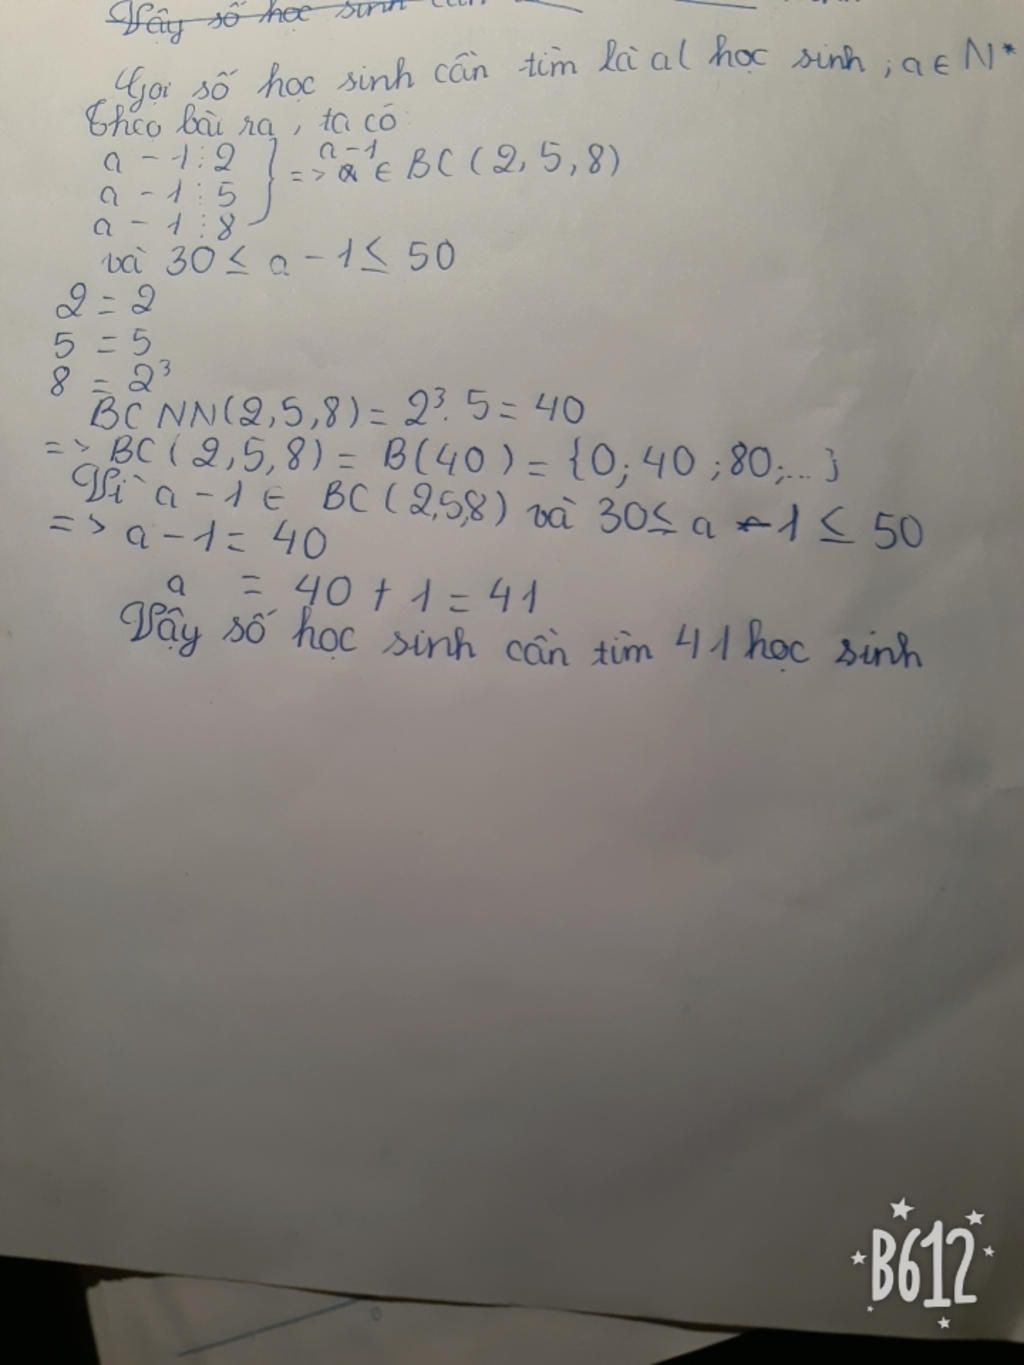 Vậy số học sinh cần
Gọi số học sinh cần tìm là a( học sinh ; a ∈ N*
Theo bài ra , ta có
a - 1 ⋮ 2
a - 1 ⋮ 5
a - 1 ⋮ 8
=> a - 1 ∈ BC ( 2, 5, 8 )
và 30 ≤ a - 1 ≤ 50
2 = 2
5 = 5
8 = 2³
BCNN(2,5,8) = 2³. 5 = 40
=> BC ( 2,5,8) = B(40) = {0; 40 ;80;...}
Vì a - 1 ∈ BC (2,5,8) và 30 ≤ a - 1 ≤ 50
=> a - 1 = 40
a = 40 + 1 = 41
Vậy số học sinh cần tìm 41 học sinh
B612